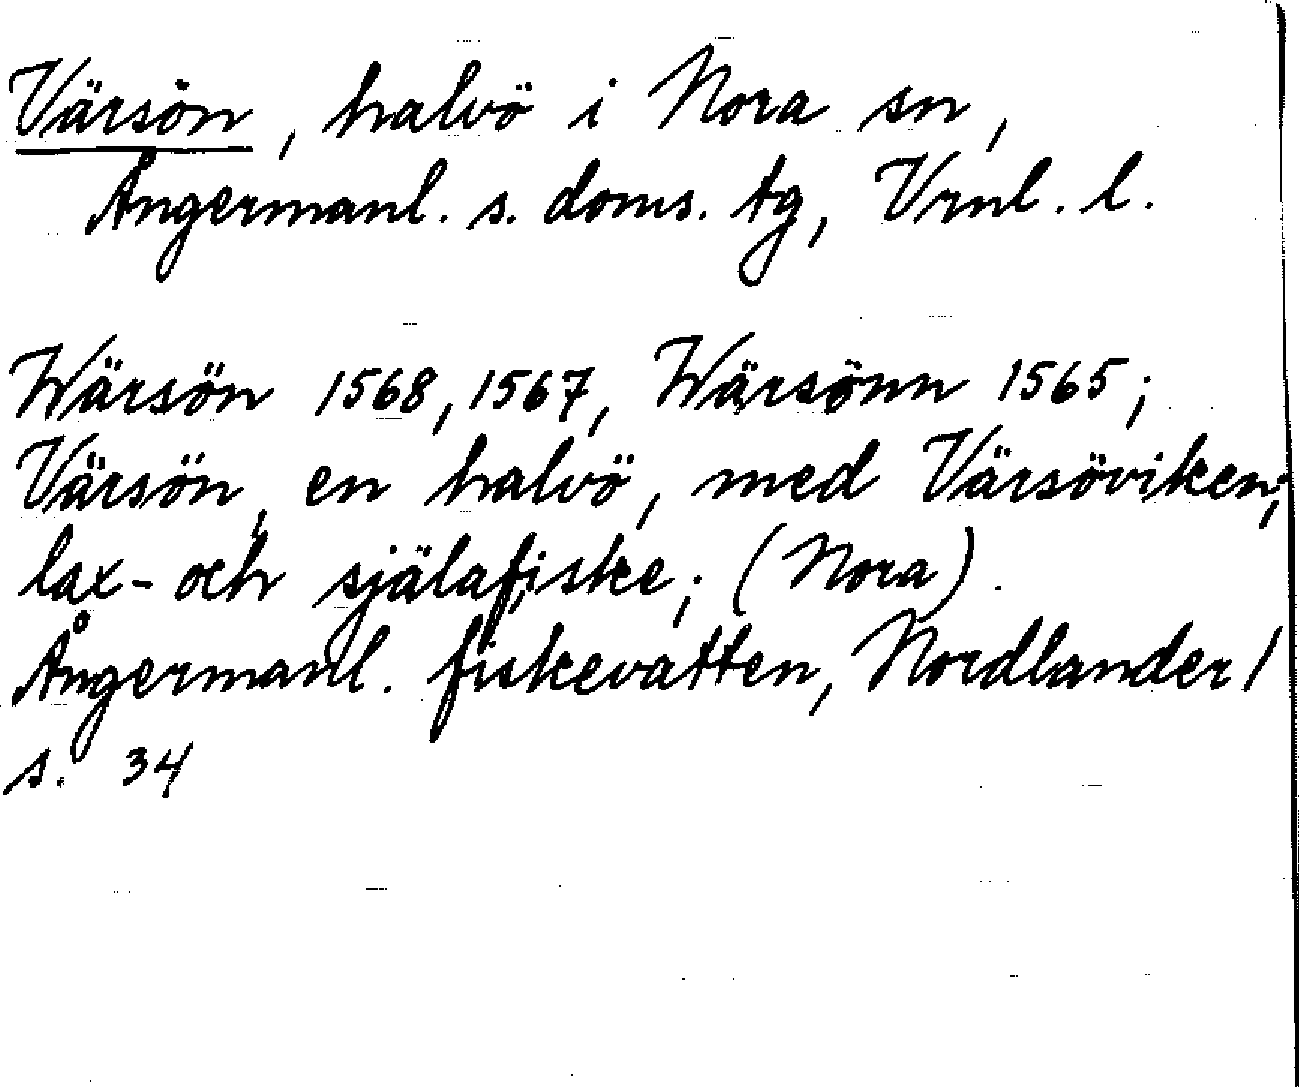 Värsön, halvö i Nora sn,
Ångermanl. s. doms. tg, Vrnl. l.
Wärsön 1568, 1567, Wärsönn 1565;
Värsön, en halvö, med Värsöviken;
lax- och själafiske; (Nora).
Ångermanl. fiskevatten, Nordlander /
s. 34